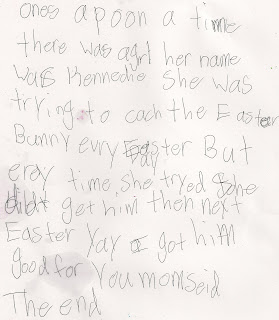 ones apoon a time
there was a grl her name
was Kennedie She was
trying to cach the Easter
Bunny evry Easter But
erey time she tryed she
didt get him then next
Easter Yay I got him
good for You mom seid
The end